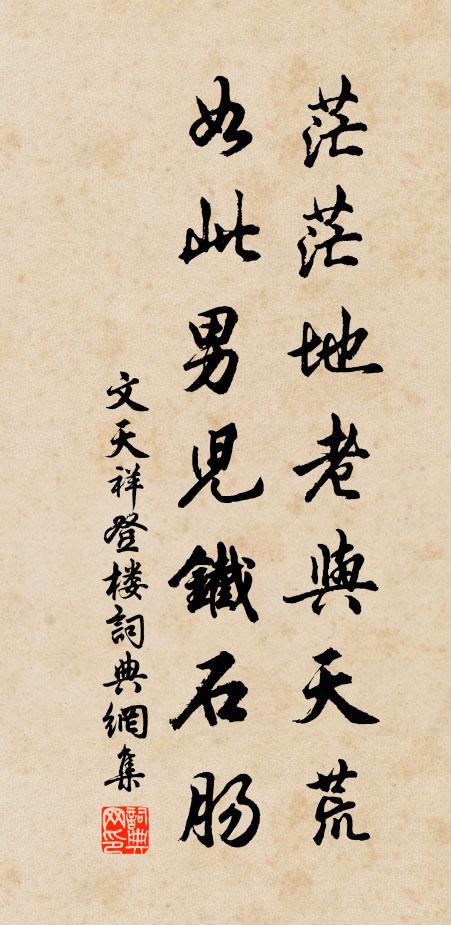 茫茫地老與天荒
如此男兒鐵石肠
文天祥登楼詞典網集
詞典
网印